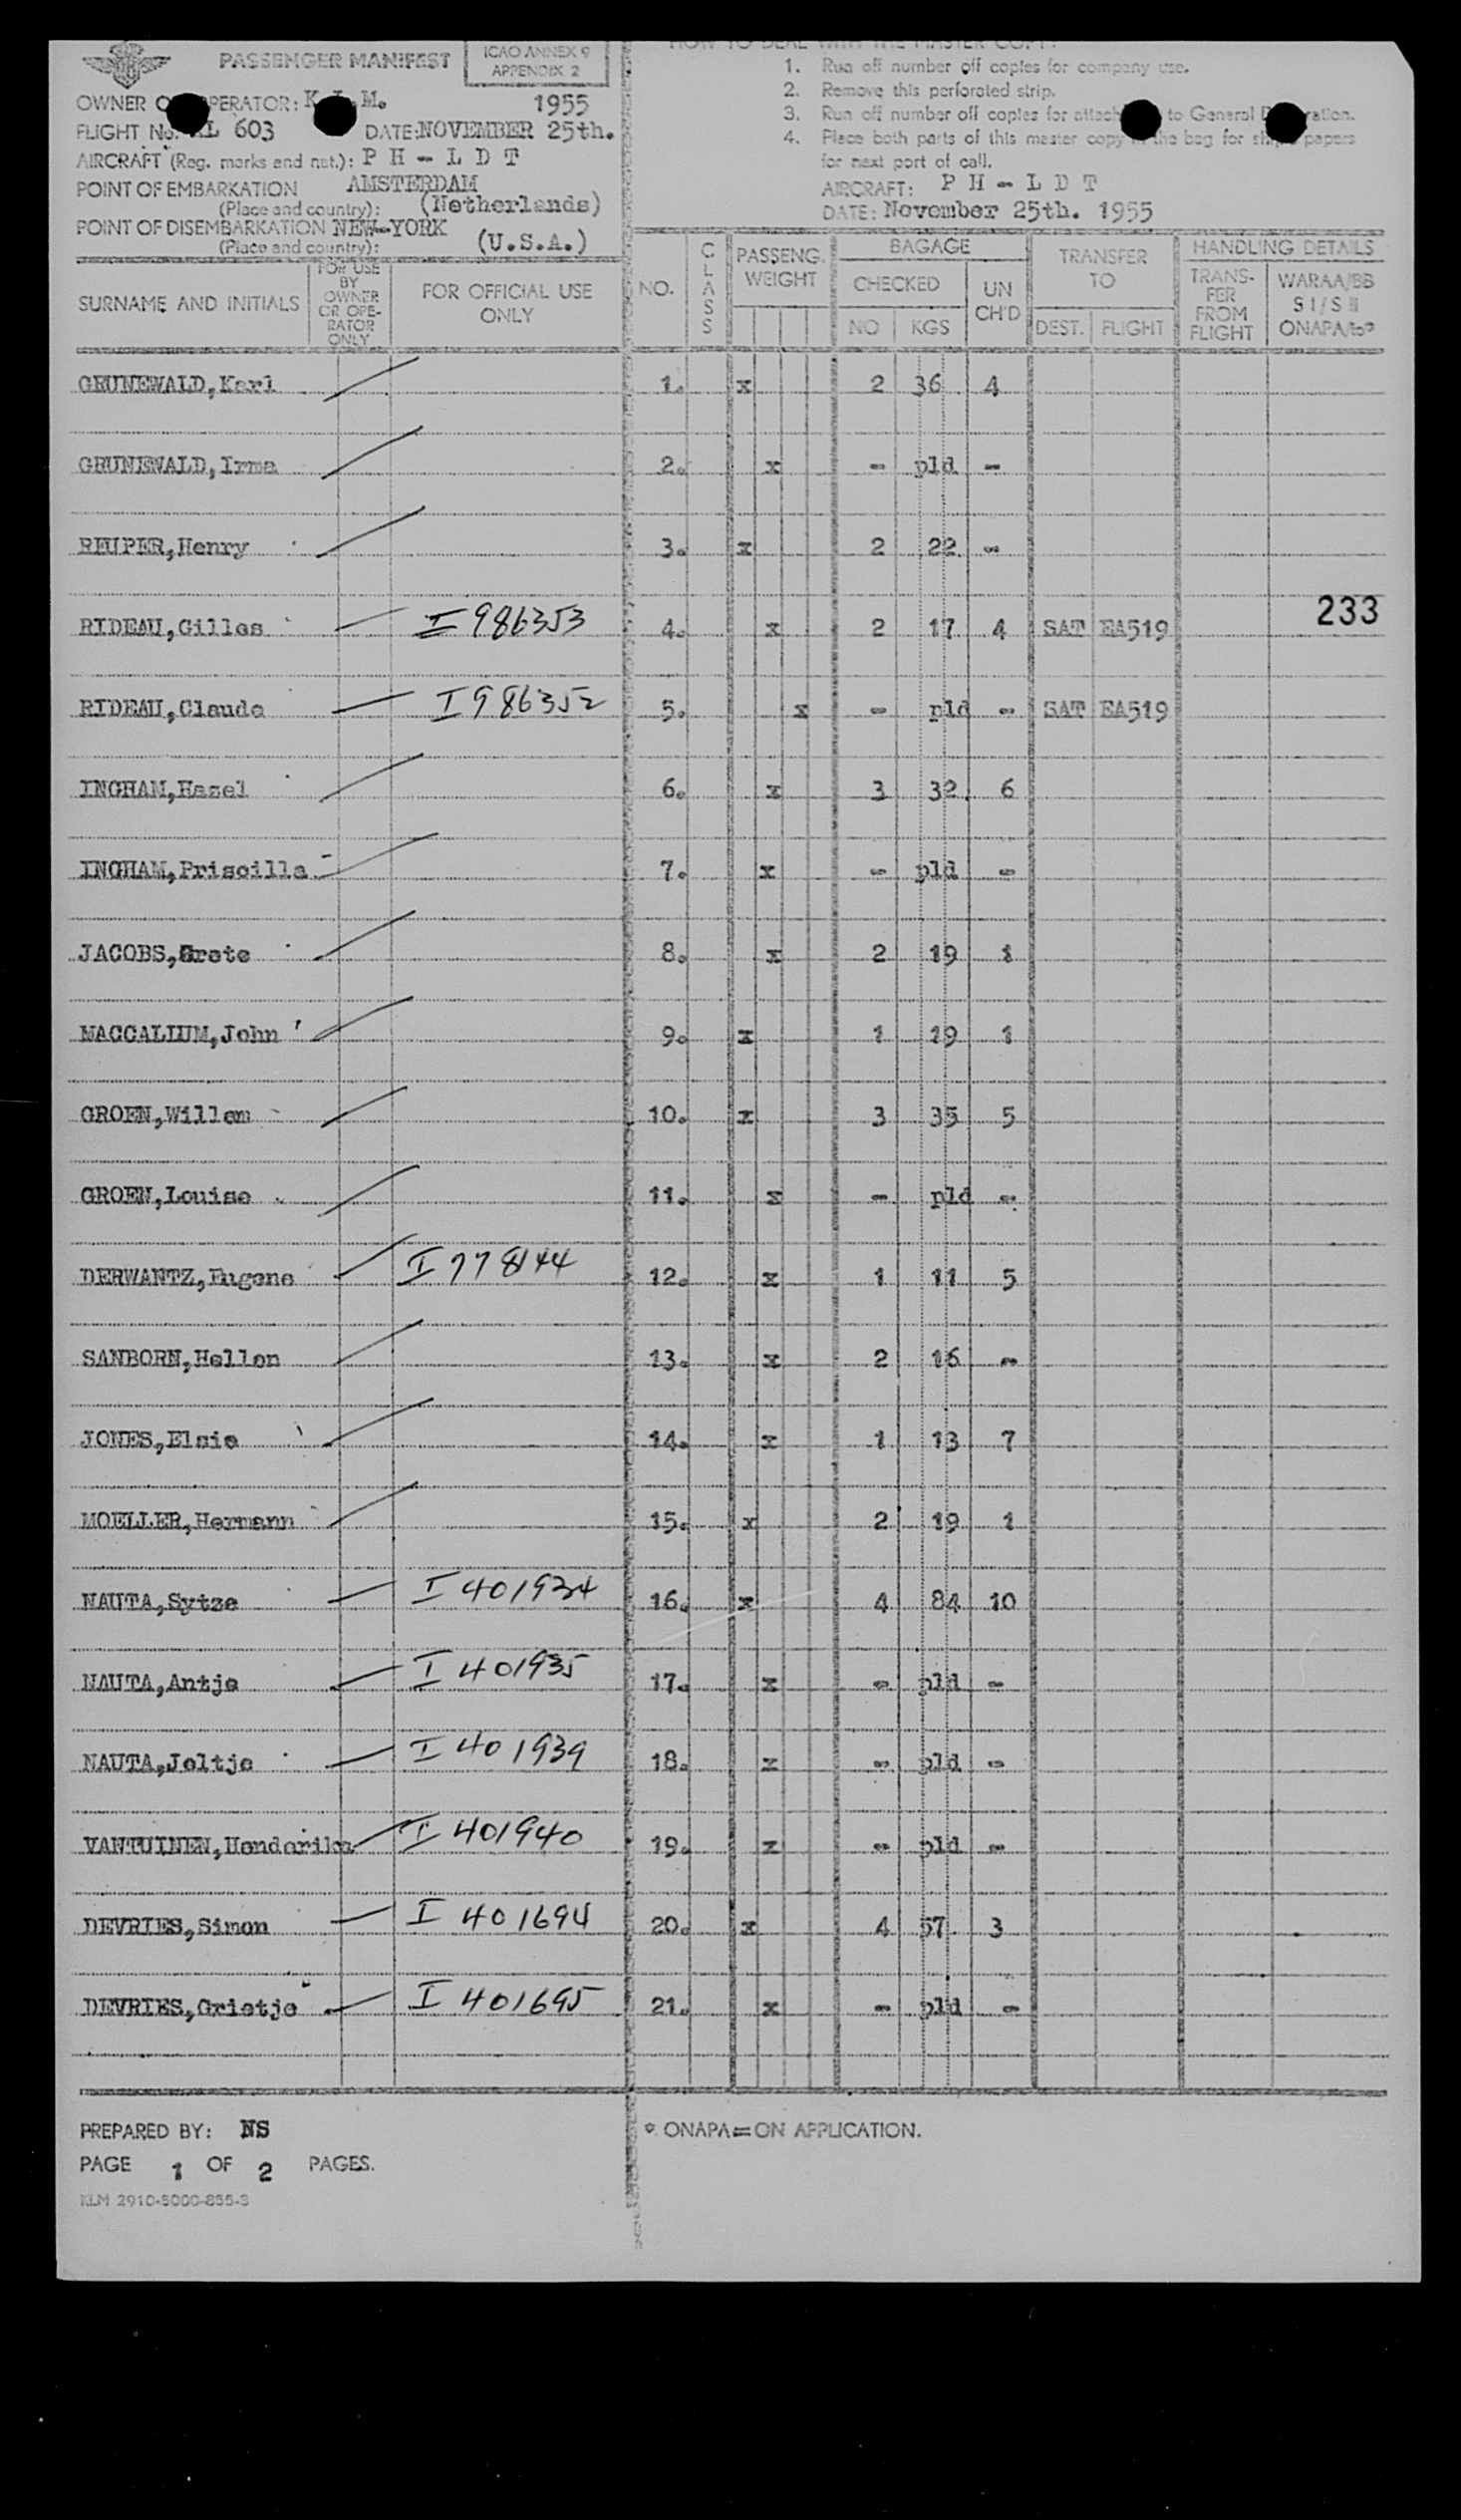 PASSENGER MANIFEST
ICAO ANNEX 9
APPENDIX 2
OWNER OPERATOR: K.L.M. 1955
FLIGHT No. KL 603 DATE: NOVEMBER 25th.
AIRCRAFT (Reg. marks and nat.): P H - L D T
POINT OF EMBARKATION AMSTERDAM
(Place and country): (Netherlands)
POINT OF DISEMBARKATION NEW-YORK
(Place and country): (U.S.A.)
HOW TO DEAL WITH THE MASTER COPY:
1. Run off number off copies for company use.
2. Remove this perforated strip.
3. Run off number off copies for attach to General ration.
4. Place both parts of this master copy in the bag for ship's papers
for next port of call.
AIRCRAFT: P H - L D T
DATE: November 25th. 1955
SURNAME AND INITIALS FOR USE BY OWNER OR OPE-RATOR ONLY FOR OFFICIAL USE ONLY NO. CLASS PASSENG. WEIGHT BAGAGE CHECKED NO KGS UN CH'D TRANSFER TO DEST. FLIGHT HANDLING DETAILS TRANS-FER FROM FLIGHT WARAA/BB S I / S II ONAPA/to?
GRUNEWALD,Karl 1. x 2 36 4
GRUNEWALD,Irma 2. x - pld -
REUPER,Henry 3. x 2 22 -
233
RIDEAU,Gilles I 986353 4. x 2 17 4 SAT EA519
RIDEAU,Claude I 986352 5. x - pld - SAT EA519
INGHAM,Hazel 6. x 3 32 6
INGHAM,Priscilla 7. x - pld -
JACOBS,Grete 8. x 2 19 1
MACCALLUM,John 9. x 1 19 1
GROEN,Willem 10. x 3 35 5
GROEN,Louise 11. x - pld -
DERWANTZ,Eugene I 778144 12. x 1 11 5
SANBORN,Hellen 13. x 2 16 -
JONES,Elsie 14. x 1 13 7
MOELLER,Hermann 15. x 2 19 1
NAUTA,Sytze I 401934 16. x 4 84 10
NAUTA,Antje I 401935 17. x - pld -
NAUTA,Jeltje I 401939 18. x - pld -
VANTUINEN,Henderika I 401940 19. x - pld -
DEVRIES,Simon I 401694 20. x 4 57 3
DEVRIES,Grietje I 401695 21. x - pld -
PREPARED BY: NS
* ONAPA=ON APPLICATION.
PAGE 1 OF 2 PAGES.
KLM 2910-5000-855-3